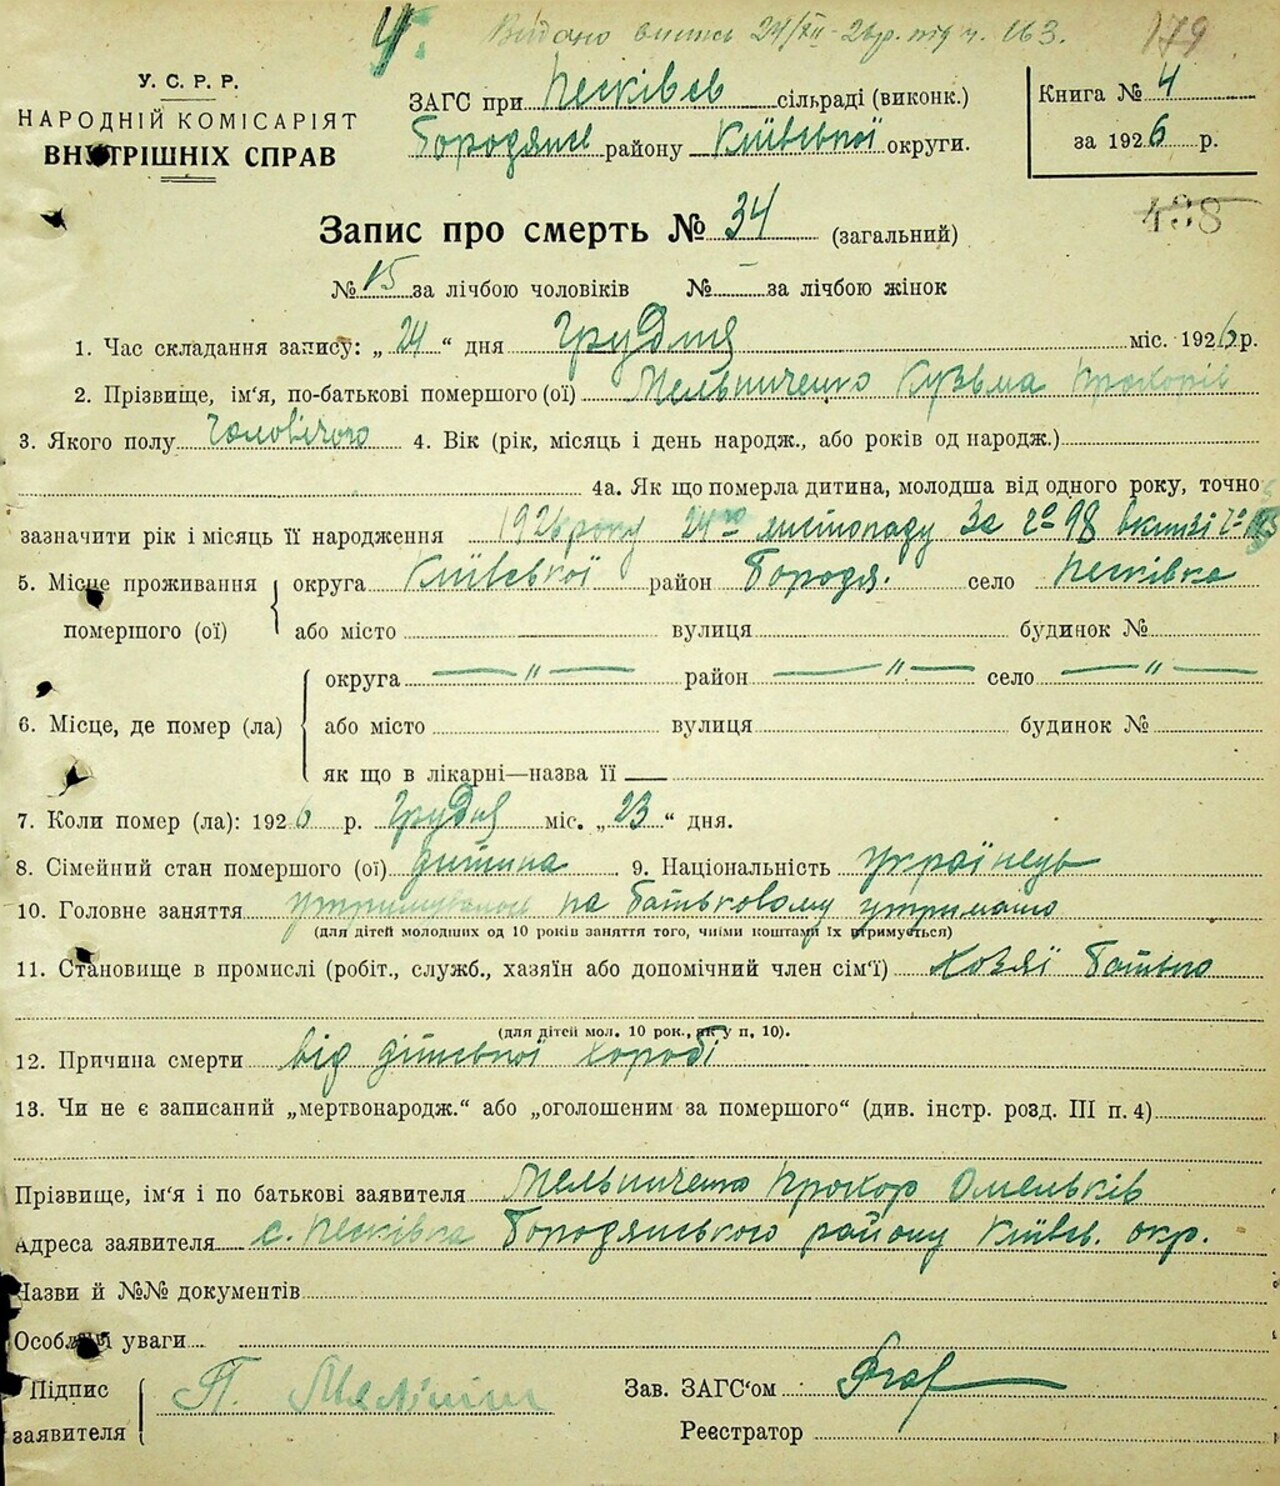 Видано випись 24/XII-26р. під ч. 163.
179
У. С. Р. Р.
НАРОДНІЙ КОМІСАРІЯТ
ВНУТРІШНІХ СПРАВ
ЗАГС при Песківсь сільраді (виконк.)
Бородянсь району Київської округи.
Книга № 4
за 1926 р.
438
Запис про смерть № 34 (загальний)
№ 15 за лічбою чоловіків № - за лічбою жінок
1. Час складання запису: „ 24 “ дня Грудня міс. 1926 р.
2. Прізвище, ім'я, по-батькові помершого (ої) Мельниченко Кузьма Прохорів
3. Якого полу Чоловічого 4. Вік (рік, місяць і день народж., або років од народж.)
4а. Як що померла дитина, молодша від одного року, точно
зазначити рік і місяць її народження 1926 року 24го листопаду За чо 98 в книзі чо
5. Місце проживання помершого (ої) округа Київської район Бородя. село Песківка
або місто вулиця будинок №
6. Місце, де помер (ла) округа — " — район — " — село — " —
або місто вулиця будинок №
як що в лікарні—назва її —
7. Коли помер (ла): 1926 р. Грудня міс. „ 23 “ дня.
8. Сімейний стан помершого (ої) дитина 9. Національність українець
10. Головне заняття на батьковому
(для дітей молодших од 10 років заняття того, чиїми коштами їх утримується)
11. Становище в промислі (робіт., служб., хазяїн або допомічний член сім'ї) хозяї батько
(для дітей мол. 10 рок., як у п. 10).
12. Причина смерти від дітської хоробі
13. Чи не є записаний „мертвонародж.“ або „оголошеним за помершого“ (див. інстр. розд. III п. 4)
Прізвище, ім'я і по батькові заявителя Мельниченко Прохор Омельків
Адреса заявителя с. Песківка Бородянського району Київсь. окр.
Назви й №№ документів
Особливі уваги
Підпис заявителя П.
Зав. ЗАГС'ом
Реєстратор